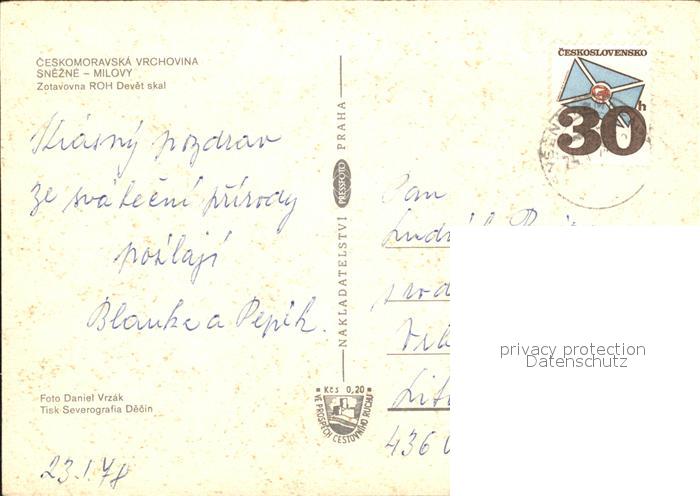 ČESKOMORAVSKÁ VRCHOVINA
SNĚŽNÉ – MILOVY
Zotavovna ROH Devět skal
Krásný pozdrav
ze sváteční přírody
posílají
Blanka a Pepík.
Foto Daniel Vrzák
Tisk Severografia Děčín
23.1.78
NAKLADATELSTVÍ PRESSFOTO PRAHA
Kčs 0,20
VE PROSPĚCH CESTOVNÍHO RUCHU
ČESKOSLOVENSKO
30h
Pan
Luděk
436
privacy protection
Datenschutz